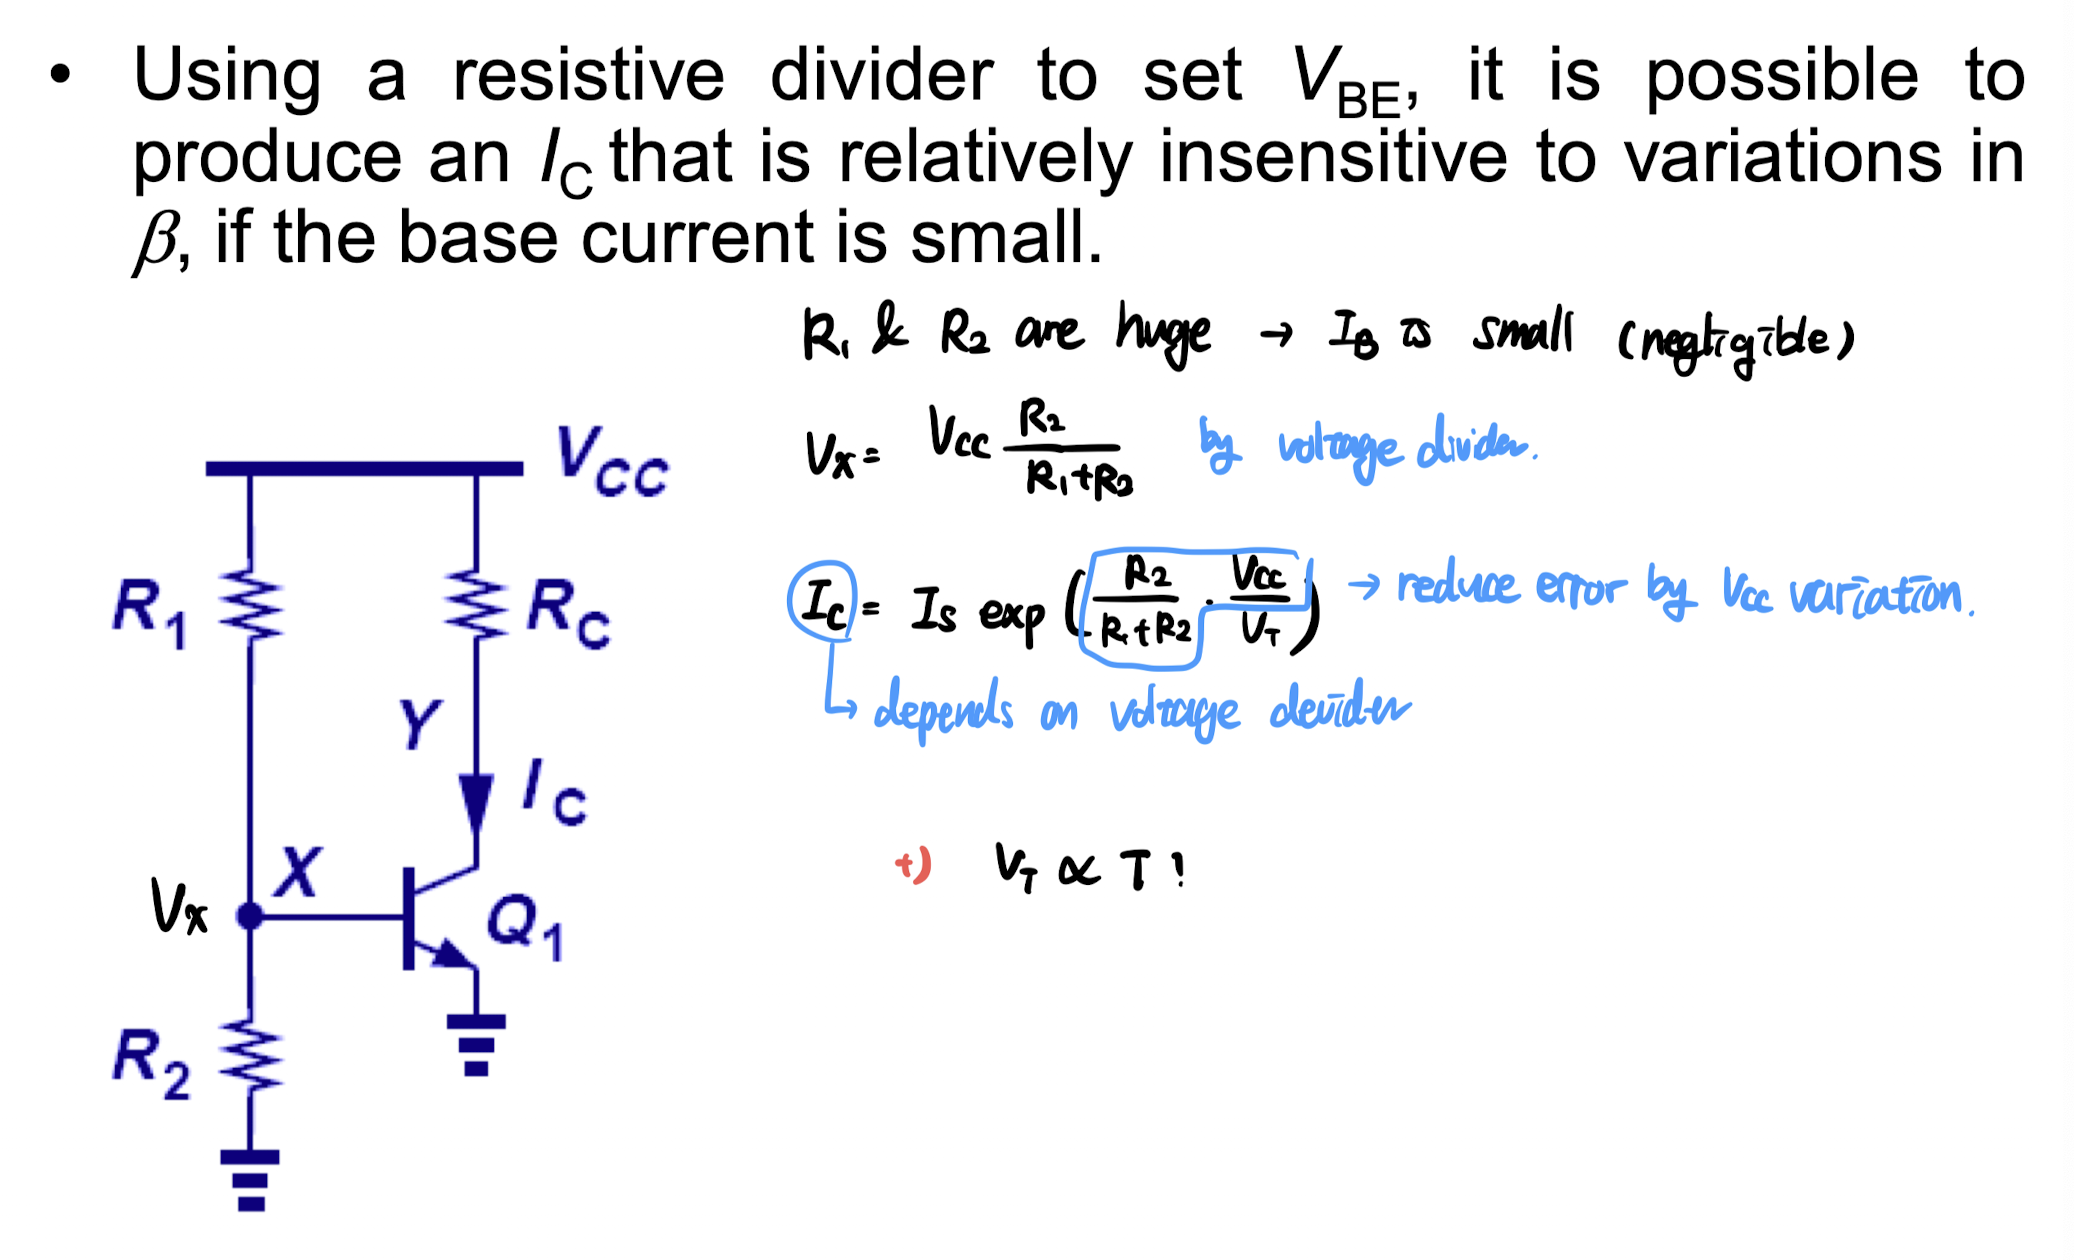 • Using a resistive divider to set VBE, it is possible to
produce an IC that is relatively insensitive to variations in
β, if the base current is small.
R1 & R2 are huge → IB is small (negligible)
Vx = Vcc R2/(R1+R2) by voltage divider.
Ic = Is exp (R2/(R1+R2) · Vcc/VT) → reduce error by Vcc variation.
↳ depends on voltage devider
+) VT ∝ T !
VCC
R1
RC
Y
IC
X
Vx
Q1
R2